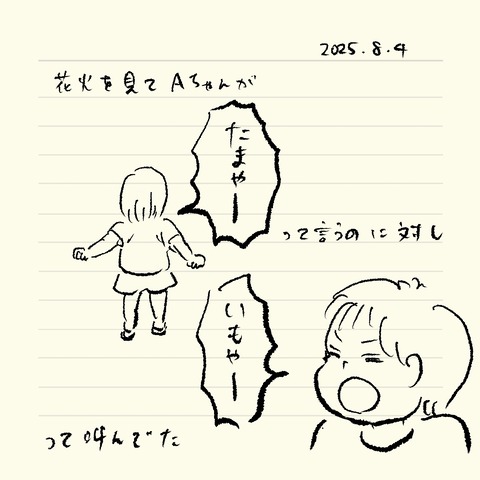 2025.8.4
花火を見てAちゃんが
たまやー
って言うのに対し
いもやー
って叫んでた